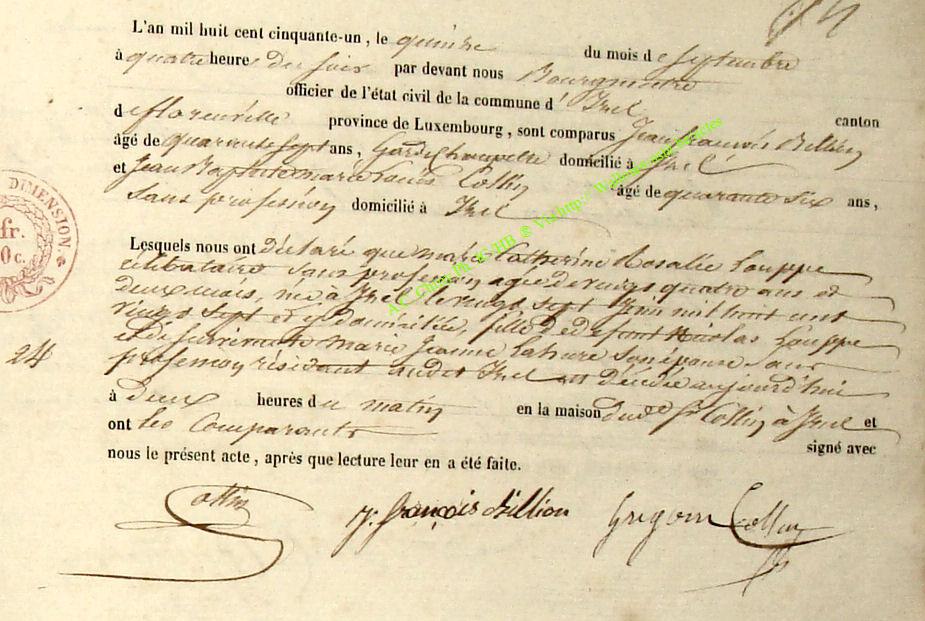 L'an mil huit cent cinquante-un, le quinze du mois de Septembre
à quatre heures du soir par devant nous Bourgmestre
officier de l'état civil de la commune d'Izel canton
de florenville province de Luxembourg, sont comparus Jean françois Billion
âgé de quarante sept ans, Garde Champetre domicilié à Izel
et Jean Baptiste Collin âgé de quarante six ans,
sans profession domicilié à Izel
Lesquels nous ont déclaré que marie Catherine Rosalie Louppe
célibataire sans profession agée de vingt quatre ans et
deux mois, née à Izel le vingt sept Juin mil huit cent
vingt sept et y domiciliée, fille de défunt Nicolas Louppe
et de survivante Marie Jeanne Lahure son épouse sans
profession résidant audit Izel est décédée aujourd'hui
à deux heures du matin en la maison dudt Sr Collin à Izel et
ont les Comparants signé avec
nous le présent acte, après que lecture leur en a été faite.
Collin J. françois Billion Grégoire Collin
24
DIMENSION
fr.
0 c.